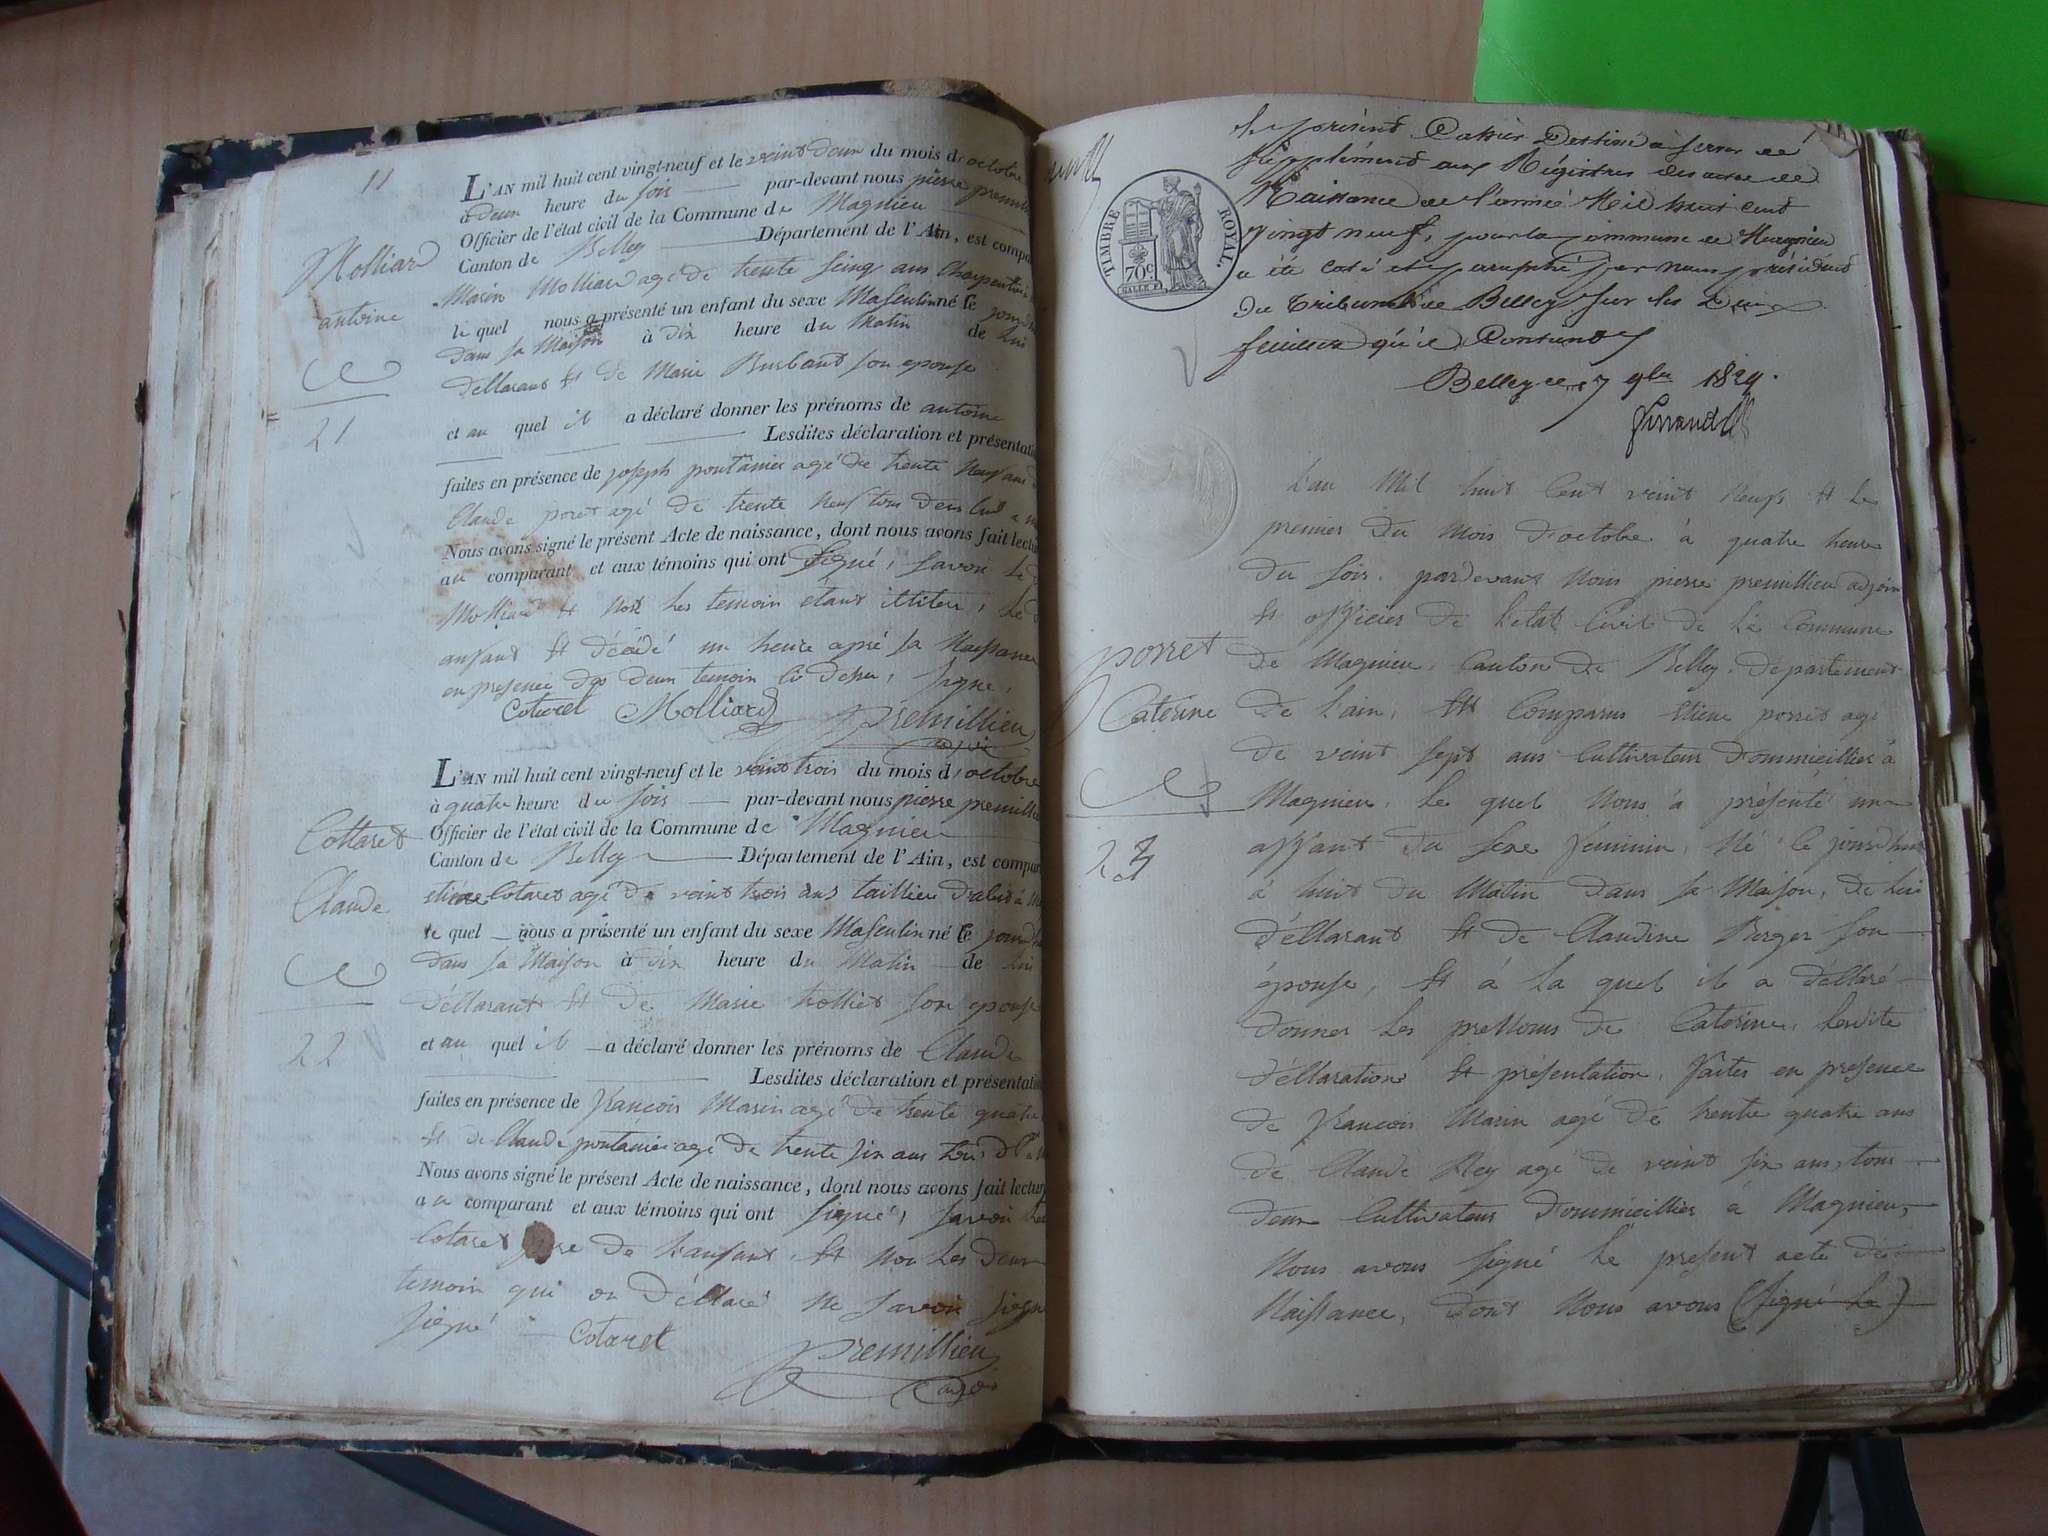 11
L'AN mil huit cent vingt-neuf et le veint deux du mois d'octobre
à deux heure du soir par-devant nous pierre premillieu
Officier de l'état civil de la Commune de Magnieu
Canton de Belley Département de l'Ain, est compa
Marin Molliard agé de trente sing ans Charpentier
le quel nous a présenté un enfant du sexe Masculin né le jourdhui
dans sa Maison à dix heure du Matin de lui
déllarant et de Marie Burbant son epouse
et au quel il a déclaré donner les prénoms de antoine
Lesdites déclaration et présentati
faites en présence de joseph pontanier agé de trente neuf ans
Claude poret agé de trente neuf tous deux
Nous avons signé le présent Acte de naissance, dont nous avons fait lectu
au comparant et aux témoins qui ont signé, savoir le
Molliard et non les temoin étant illiteré, le d
anfant et décédé un heure apré sa Naissance
en presence des deux temoin ci desu, signé,
Cotaret Molliard
Premillieu
adjoint
Molliard
antoine
21
L'AN mil huit cent vingt-neuf et le veint trois du mois d'octobre
à quatre heure du soir par-devant nous pierre premillieu
Officier de l'état civil de la Commune de Magnieu
Canton de Belley Département de l'Ain, est compar
etiene Cotaret agé de veint trois ans taillieu d'abit à
le quel nous a présenté un enfant du sexe Masculin né le jourdhui
dans sa Maison à dix heure du Matin de lui
déllarant et de Marie trolliet son epouse
et au quel il a déclaré donner les prénoms de Claude
Lesdites déclaration et présentati
faites en présence de francois Marin agé de trente quatre
et de Claude pontanier agé de trente six ans tous
Nous avons signé le présent Acte de naissance, dont nous avons fait lectur
au comparant et aux témoins qui ont signé, savoir le
Cotaret pere de l'anfant, et non les deux
temoin qui on déllaré ne savoir signé
signé
Cotaret
Premillieu
adjoint
Cottaret
Claude
22
le présent Cahier Destiné à servir de
Supplément aux Régistres des actes de
Naissance de l'année Mil huit cent
vingt neuf, pour la commune de Magnieu
a été coté et paraphé par nous président
du Tribunal de Belley sur les deux
feuillets qu'il Contient
Belley le 7 9bre 1829.
TIMBRE ROYAL.
70c.
L'an Mil huit Cent veint Neufs et le
premier du Mois d'octobre à quatre heure
du soir, pardevant Nous pierre premillieu adjoin
et officier de l'etat Civil de la Commune
de Magnieu, Canton de Belley, departement
de l'ain, et Comparus Etiene porret agé
de veint sept ans Cultivateur dommicillié à
Magnieu, le quel Nous à présenté un
anfant du sexe feminin, Né le jourdhui
à huit du Matin dans sa Maison, de lui
déllarant et de Claudine Berger son
épouse, et à la quel il a déllaré
donner les prenoms de Caterine, lesdite
déllaration et présentation, faites en presence
de francois Marin agé de trente quatre ans
de Claude Rey agé de veint six ans, tous
deux Cultivateur dommicillié à Magnieu,
Nous avons signé le present acte de
Naissance, dont Nous avons (signé le)
porret
Caterine
23